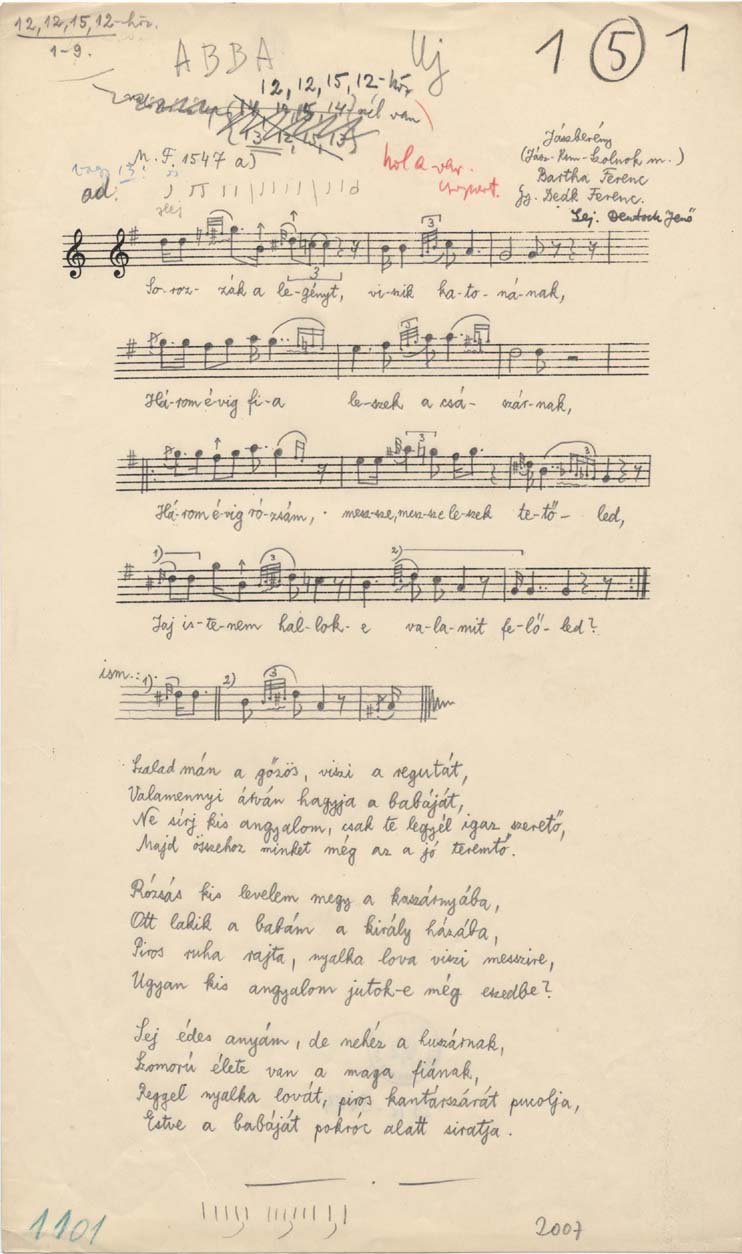 12, 12, 15, 12-höz.
1-9.
ABBA
Uj
1 5 1
12, 12, 15, 12-höz
(14, 14, 15, 14) nél van
(13, 12, 15, 13)
M. F. 1547 a)
vagy 13?
hol a var.
csoport.
Jászberény
(Jász-Km-Szolnok m.)
Bartha Ferenc
Gy. Deák Ferenc.
Lej. Deutsch Jenő
ad.
3 3
So-roz-zák a le-gényt, vi-szik ka-to-ná-nak,
Há-rom é-vig fi-a le-szek a csá-szár-nak,
3
Há-rom é-vig ró-zsám, mesz-sze, mesz-sze le-szek te-tő-led,
1) 3 2)
Jaj is-te-nem hal-lok-e va-la-mit fe-lő-led?
ism.: 1) 2) 3
Szalad mán a gőzös, viszi a regutát,
Valamennyi árván hagyja a babáját,
Ne sírj kis angyalom, csak te legyél igaz szerető,
Majd összehoz minket még az a jó teremtő.
Rózsás kis levelem megy a kaszárnyába,
Ott lakik a babám a király házába,
Piros ruha rajta, nyalka lova viszi messzire,
Ugyan kis angyalom jutok-e még eszedbe?
Sej édes anyám, de nehéz a huszárnak,
Szomorú élete van a maga fiának,
Reggel nyalka lovát, piros kantárszárát pucolja,
Estve a babáját pokróc alatt siratja.
1101
2007